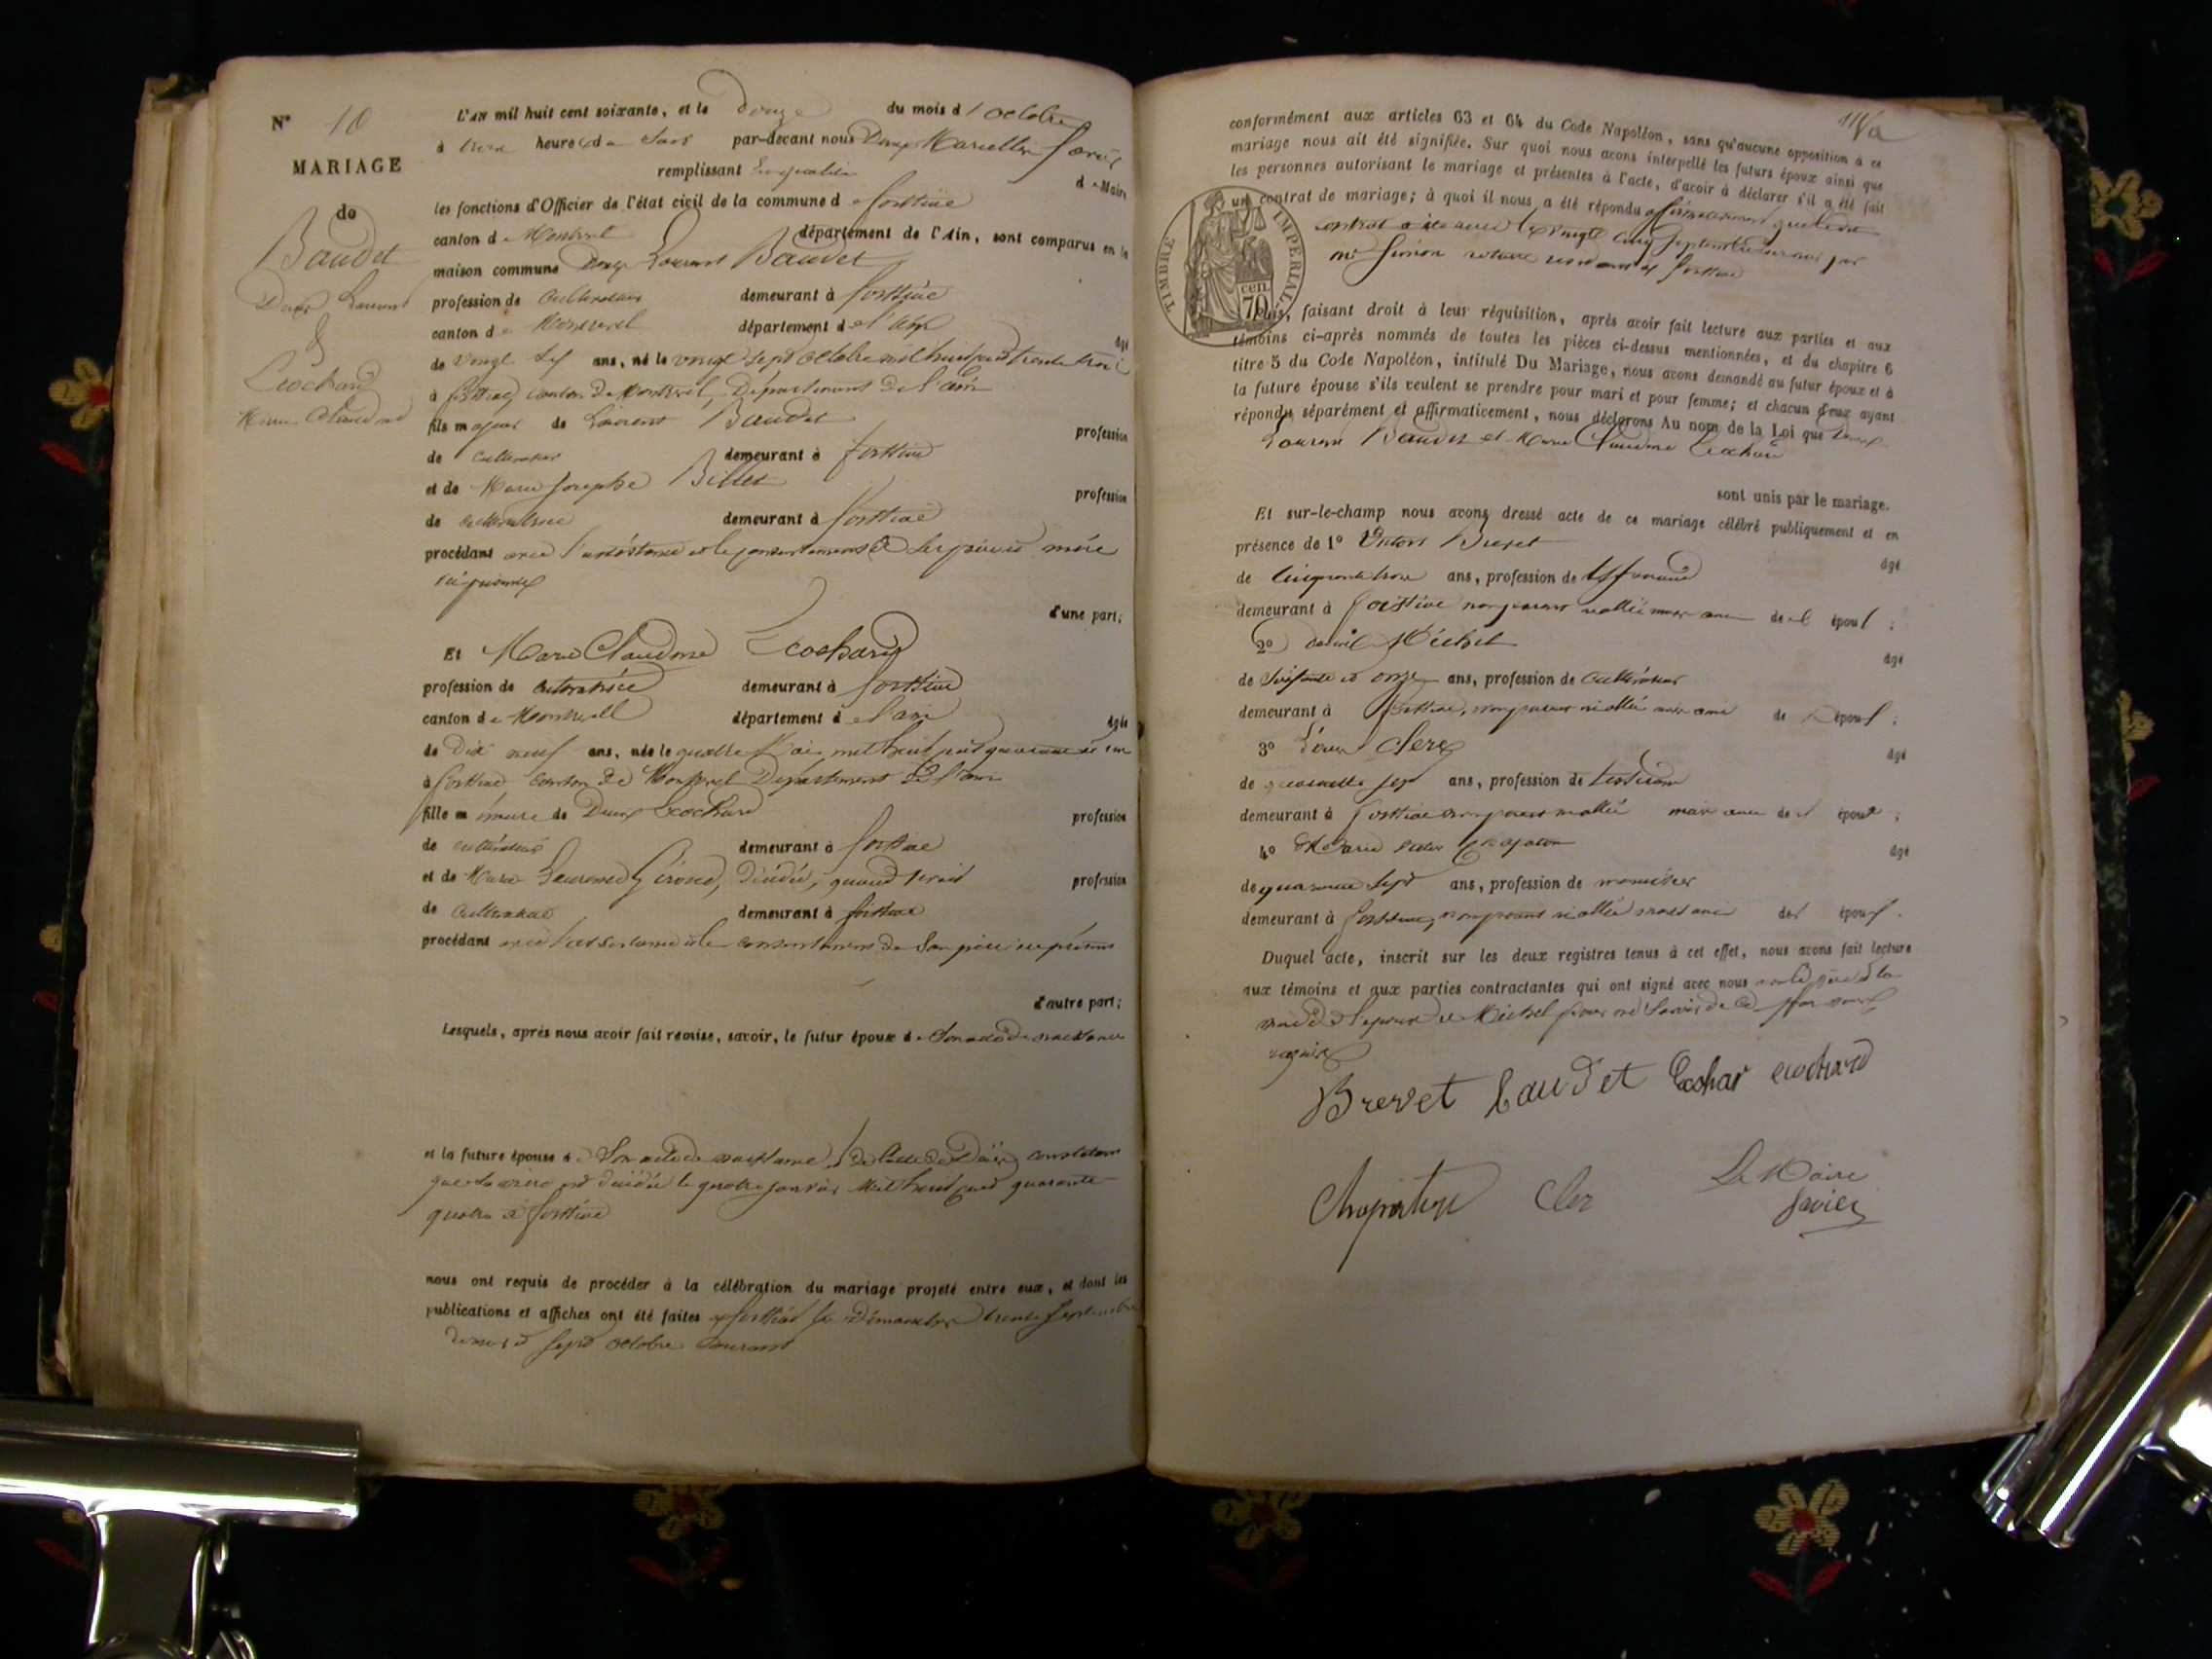 N° 10
MARIAGE
de
Baudet
Denis Laurent
&
Cochard
Marie Claudine
L'AN mil huit cent soixante, et le Douze du mois d'octobre
à trois heures du soir par-devant nous Denis Marcellin
remplissant en qualité de Maire
les fonctions d'Officier de l'état civil de la commune de foissiat
canton de Montrevel département de l'Ain, sont comparus en la
maison commune Denis Laurent Baudet
profession de cultivateur demeurant à foissiat
canton de Montrevel département de l'ain âgé
de vingt six ans, né le vingt sept octobre mil huit cent trente trois
à foissiat, canton de Montrevel, Département de l'ain
fils majeur de Laurent Baudet profession
de cultivateur demeurant à foissiat
et de Marie Josephe Billet profession
de cultivatrice demeurant à foissiat
procédant avec l'assistance et le consentement de ses père et mère
ici présents
d'une part;
Et Marie Claudine Cochard
profession de cultivatrice demeurant à foissiat
canton de Montrevel département de l'ain âgée
de Dix neuf ans, née le quatre Mai mil huit cent quarante et un
à foissiat, canton de Montrevel Département de l'ain
fille mineure de Denis Cochard profession
de cultivateur demeurant à foissiat
et de Marie Laurence Giroud, décédée, quand vivait profession
de cultivatrice demeurant à foissiat
procédant avec l'assistance et le consentement de son père ici présent
d'autre part;
Lesquels, après nous avoir fait remise, savoir, le futur époux de son acte de naissance
et la future épouse de son acte de naissance, de l'acte de Décès constatant
que sa mère est décédée le quatre janvier mil huit cent quarante
quatre à foissiat
nous ont requis de procéder à la célébration du mariage projeté entre eux, et dont les
publications et affiches ont été faites à foissiat les Dimanches trente septembre
dernier et sept octobre courant
conformément aux articles 63 et 64 du Code Napoléon, sans qu'aucune opposition à ce
mariage nous ait été signifiée. Sur quoi nous avons interpellé les futurs époux ainsi que
les personnes autorisant le mariage et présentes à l'acte, d'avoir à déclarer s'il a été fait
un contrat de mariage; à quoi il nous a été répondu affirmativement que le dit
contrat a été passé le vingt cinq septembre dernier par
me Simon notaire résidant à foissiat
TIMBRE IMPERIAL
70 cen
Puis, faisant droit à leur réquisition, après avoir fait lecture aux parties et aux
témoins ci-après nommés de toutes les pièces ci-dessus mentionnées, et du chapitre 6
titre 5 du Code Napoléon, intitulé Du Mariage, nous avons demandé au futur époux et à
la future épouse s'ils veulent se prendre pour mari et pour femme; et chacun d'eux ayant
répondu séparément et affirmativement, nous déclarons Au nom de la Loi que Denis
Laurent Baudet et Marie Claudine Cochard
sont unis par le mariage.
Et sur-le-champ nous avons dressé acte de ce mariage célébré publiquement et en
présence de 1° Brevet âgé
de cinquante trois ans, profession de
demeurant à foissiat non parent ni allié mais ami de l'époux;
2° Michel âgé
de soixante et onze ans, profession de cultivateur
demeurant à foissiat, non parent ni allié mais ami de l'époux;
3° Clerc âgé
de sept ans, profession de tisserand
demeurant à foissiat non parent ni allié mais ami de l'époux;
4° âgé
de quarante sept ans, profession de menuisier
demeurant à foissiat, non parent ni allié mais ami de l'époux.
Duquel acte, inscrit sur les deux registres tenus à cet effet, nous avons fait lecture
aux témoins et aux parties contractantes qui ont signé avec nous
requis
Brevet baudet Cochar cochard
Clerc Le Maire